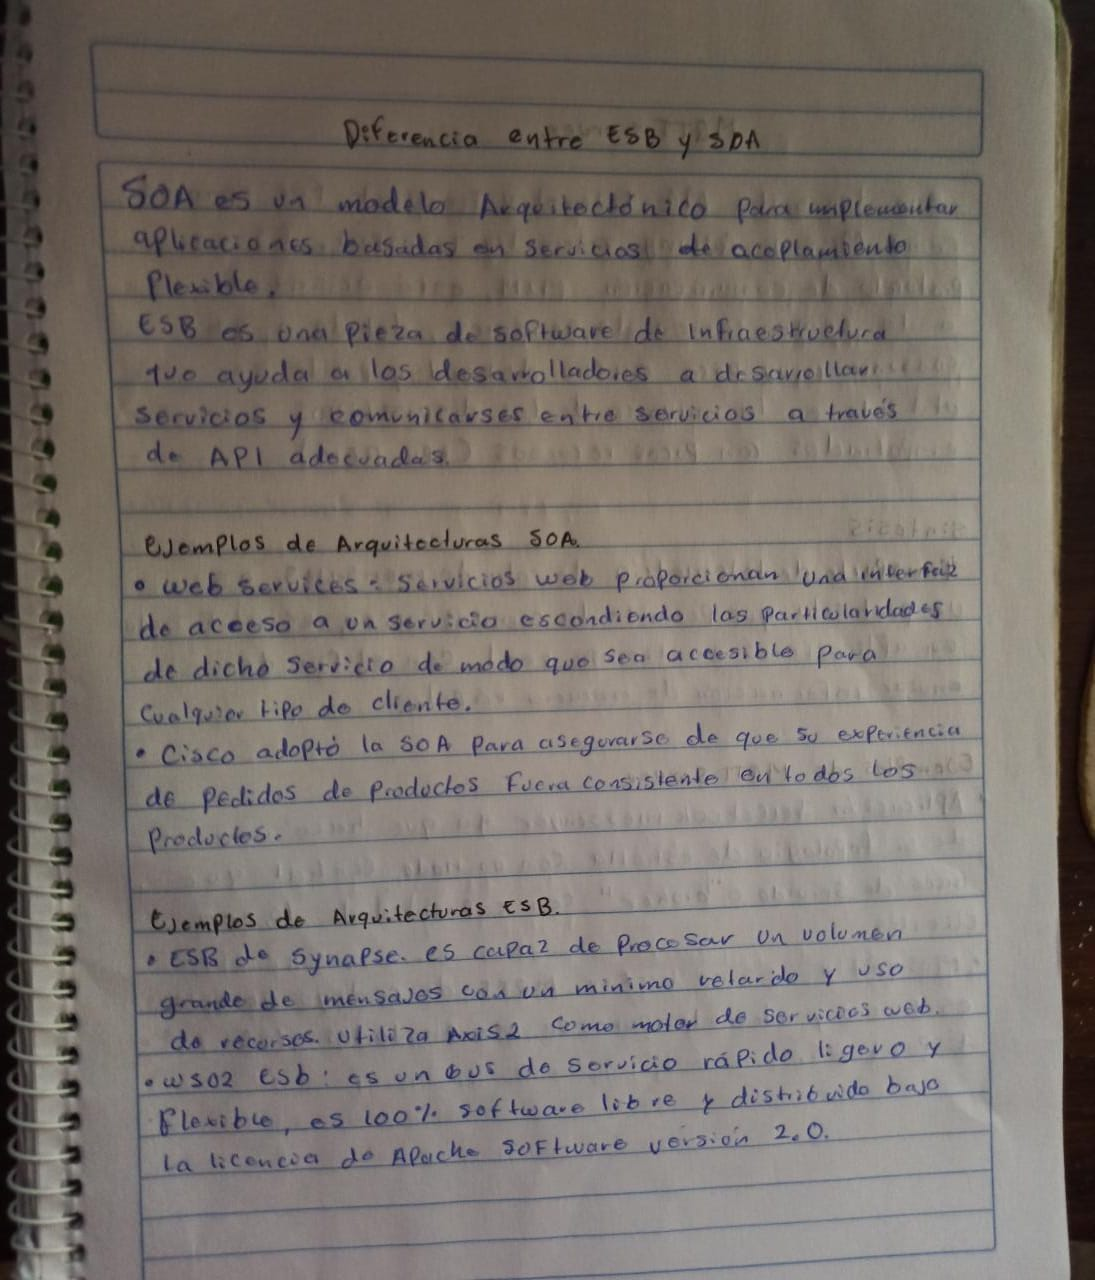 Diferencia entre ESB y SOA
SOA es un modelo Arquitectónico para implementar
aplicaciones basadas en servicios de acoplamiento
flexible.
ESB es una pieza de software de infraestructura
que ayuda a los desarrolladores a desarrollar
servicios y comunicarses entre servicios a través
de API adecuadas.
Ejemplos de Arquitecturas SOA.
• web services: Servicios web proporcionan una interfaiz
de acceso a un servicio escondiendo las particularidades
de dicho servicio de modo que sea accesible para
cualquier tipo de cliente.
• Cisco adoptó la SOA para asegurarse de que su experiencia
de pedidos de productos fuera consistente en todos los
productos.
Ejemplos de Arquitecturas ESB.
• ESB de Synapse. es capaz de procesar un volumen
grande de mensajes con un minimo retardo y uso
de recursos. Utiliza Axis2 como motor de servicios web.
• WSO2 esb: es un bus de servicio rápido ligero y
flexible, es 100% software libre y distribuido bajo
la licencia de Apache software versión 2.0.